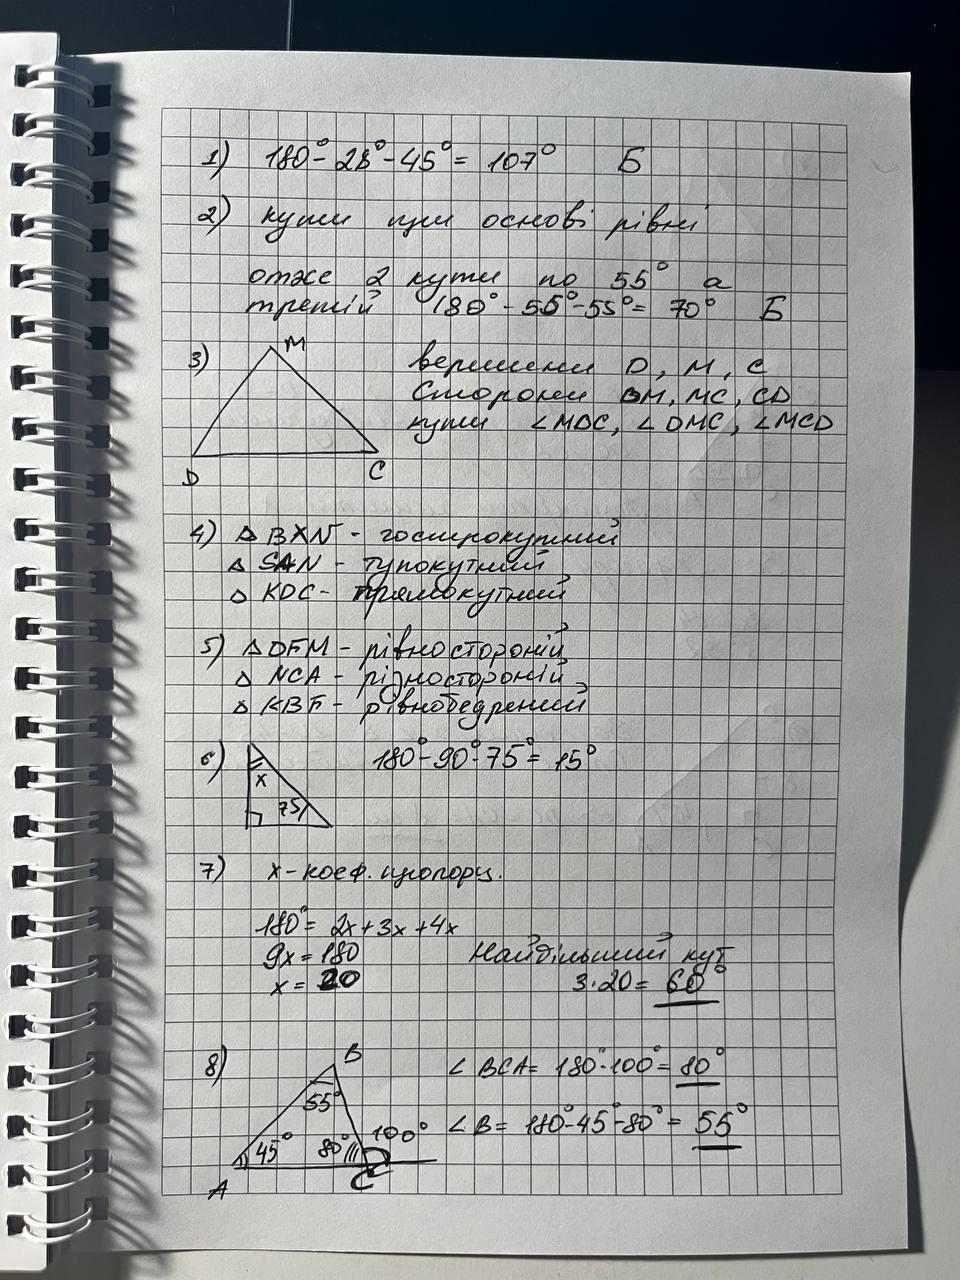 1) 180° - 28° - 45° = 107° Б
2) кути при основі рівні
отже 2 кути по 55° а
третій 180° - 55° - 55° = 70° Б
3) M
D C
вершини D, M, C
Сторони DM, MC, CD
кути ∠MDC, ∠DMC, ∠MCD
4) △ BXN - гострокутний
△ SAN - тупокутний
△ KDC - прямокутний
5) △ DFM - рівностороній
△ NCA - різностороній
△ KBF - рівнобедрений
6) x 75 180° - 90° - 75° = 15°
7) x - коеф. пропорц.
180° = 2x + 3x + 4x
9x = 180 Найдільший кут
x = 20 3·20 = 60°
8) B ∠ BCA = 180° - 100° = 80°
55°
45° 80° 100° ∠ B = 180° - 45° - 80° = 55°
A C